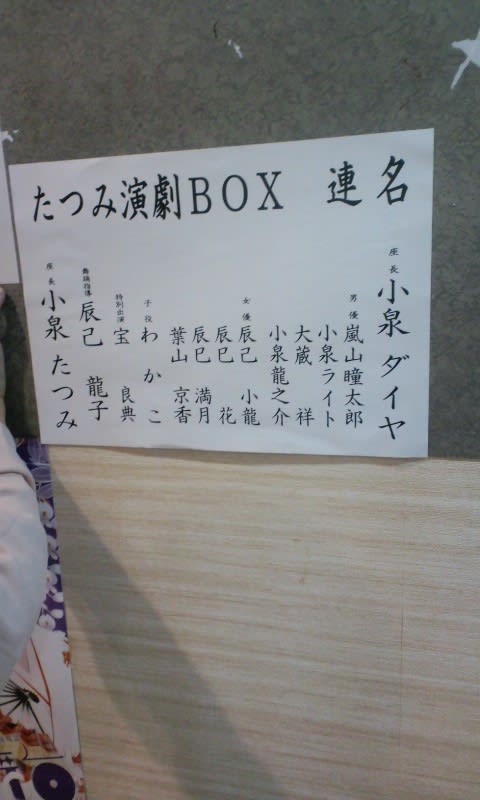 たつみ演劇BOX 連名
座長 小泉 ダイヤ
男優 嵐山瞳太郎
小泉ライト
大蔵 祥
小泉龍之介
女優 辰巳 小龍
辰巳 花
辰巳 満月
葉山 京香
子役 わかこ
特別出演 宝 良典
舞踊指導 辰己 龍子
座長 小泉 たつみ